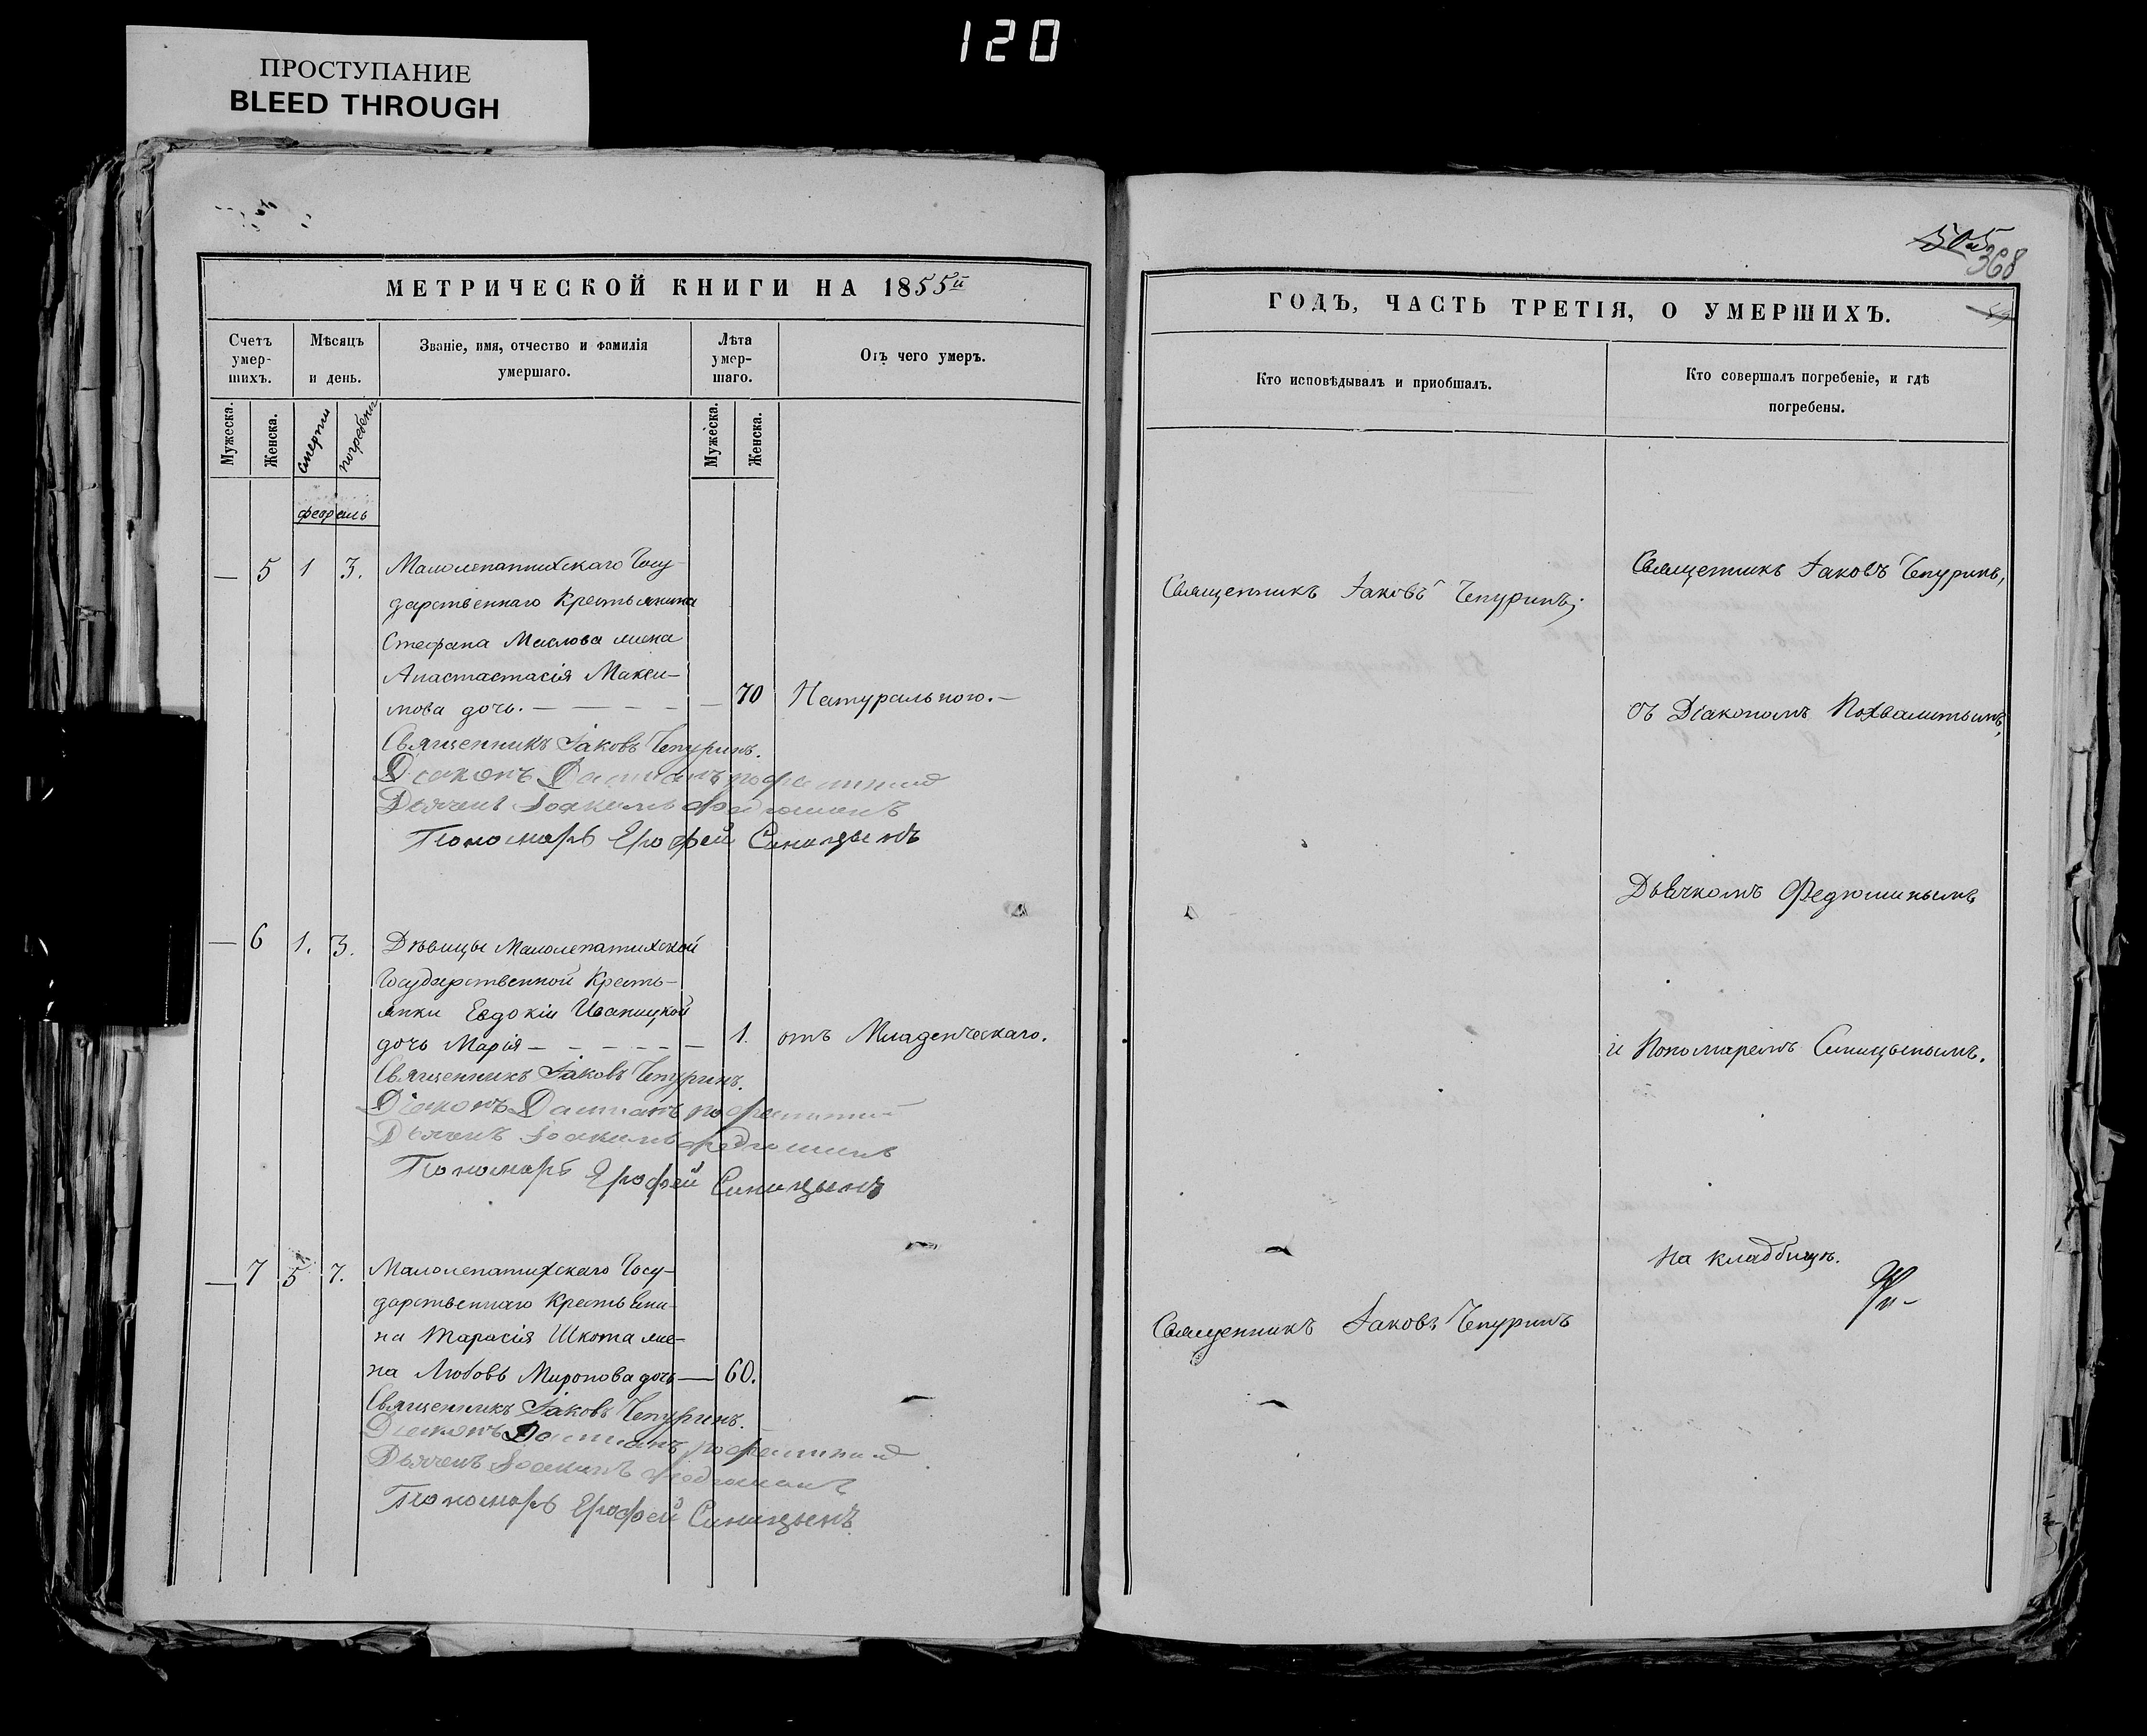 120
ПРОСТУПАНИЕ
BLEED THROUGH
МЕТРИЧЕСКОЙ КНИГИ НА 1855й
Счетъ умер-шихъ.
Мѣсяцъ и день.
Званіе, имя, отчество и фамилія умершаго.
Лѣта умер-шаго.
Отъ чего умеръ.
Мужеска.
Женска.
смерти
погребенія
Мужеска.
Женска.
февраль
— 5 1 3. Малолепатихскаго Госу-
дарственнаго Крестьянина
Стефана Маслова жена
Анастасія Макси-
мова дочь. — — — — — 70 Натуральною. —
Священникъ Іаковъ Чепуринъ.
Діаконъ Даміанъ
Дьячекъ Іоакимъ Федюшинъ
Пономарь Ерофей Синицынъ
— 6 1. 3. Дѣвицы Малолепатихской
Государственной Кресть-
янки Евдокіи Иваницкой
дочь Марія — — — — — 1. отъ Младенческаго.
Священникъ Іаковъ Чепуринъ.
Діаконъ Даміанъ
Дьячекъ Іоакимъ Федюшинъ
Пономарь Ерофей Синицынъ
— 7 5 7. Малолепатихскаго Госу-
дарственнаго Крестьяни-
на Тарасія Шкота же-
на Любовь Миронова дочь — 60.
Священникъ Іаковъ Чепуринъ.
Діаконъ Даміанъ
Дьячекъ Іоакимъ Федюшинъ
Пономарь Ерофей Синицынъ
505
368
ГОДЪ, ЧАСТЬ ТРЕТІЯ, О УМЕРШИХЪ.
Кто исповѣдывалъ и пріобщалъ.
Кто совершалъ погребеніе, и гдѣ
погребены.
Священникъ Іаковъ Чепуринъ;
Священникъ Іаковъ Чепуринъ,
съ Діакономъ Похвалитымъ,
Дьячкомъ Федюшинымъ
и Пономаремъ Синицынымъ.
на кладбищѣ.
Священникъ Іаковъ Чепуринъ